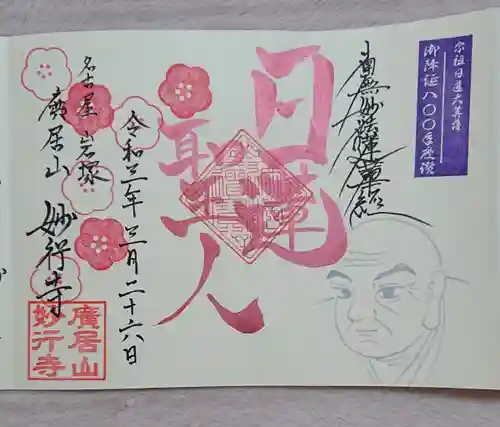 宗祖日蓮大菩薩
御降誕八〇〇年慶讃
南無妙法蓮華経
日蓮
聖人
令和三年三月二十六日
名古屋 岩塚
廣居山 妙行寺
廣居山
妙行寺